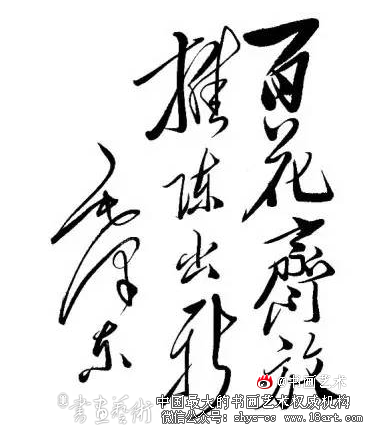 百花齊放
推陈出新
毛泽东
@书画艺术
书画艺術
中国最大的书画艺术权威机构
微信公众号：shys-cc www.18art.com